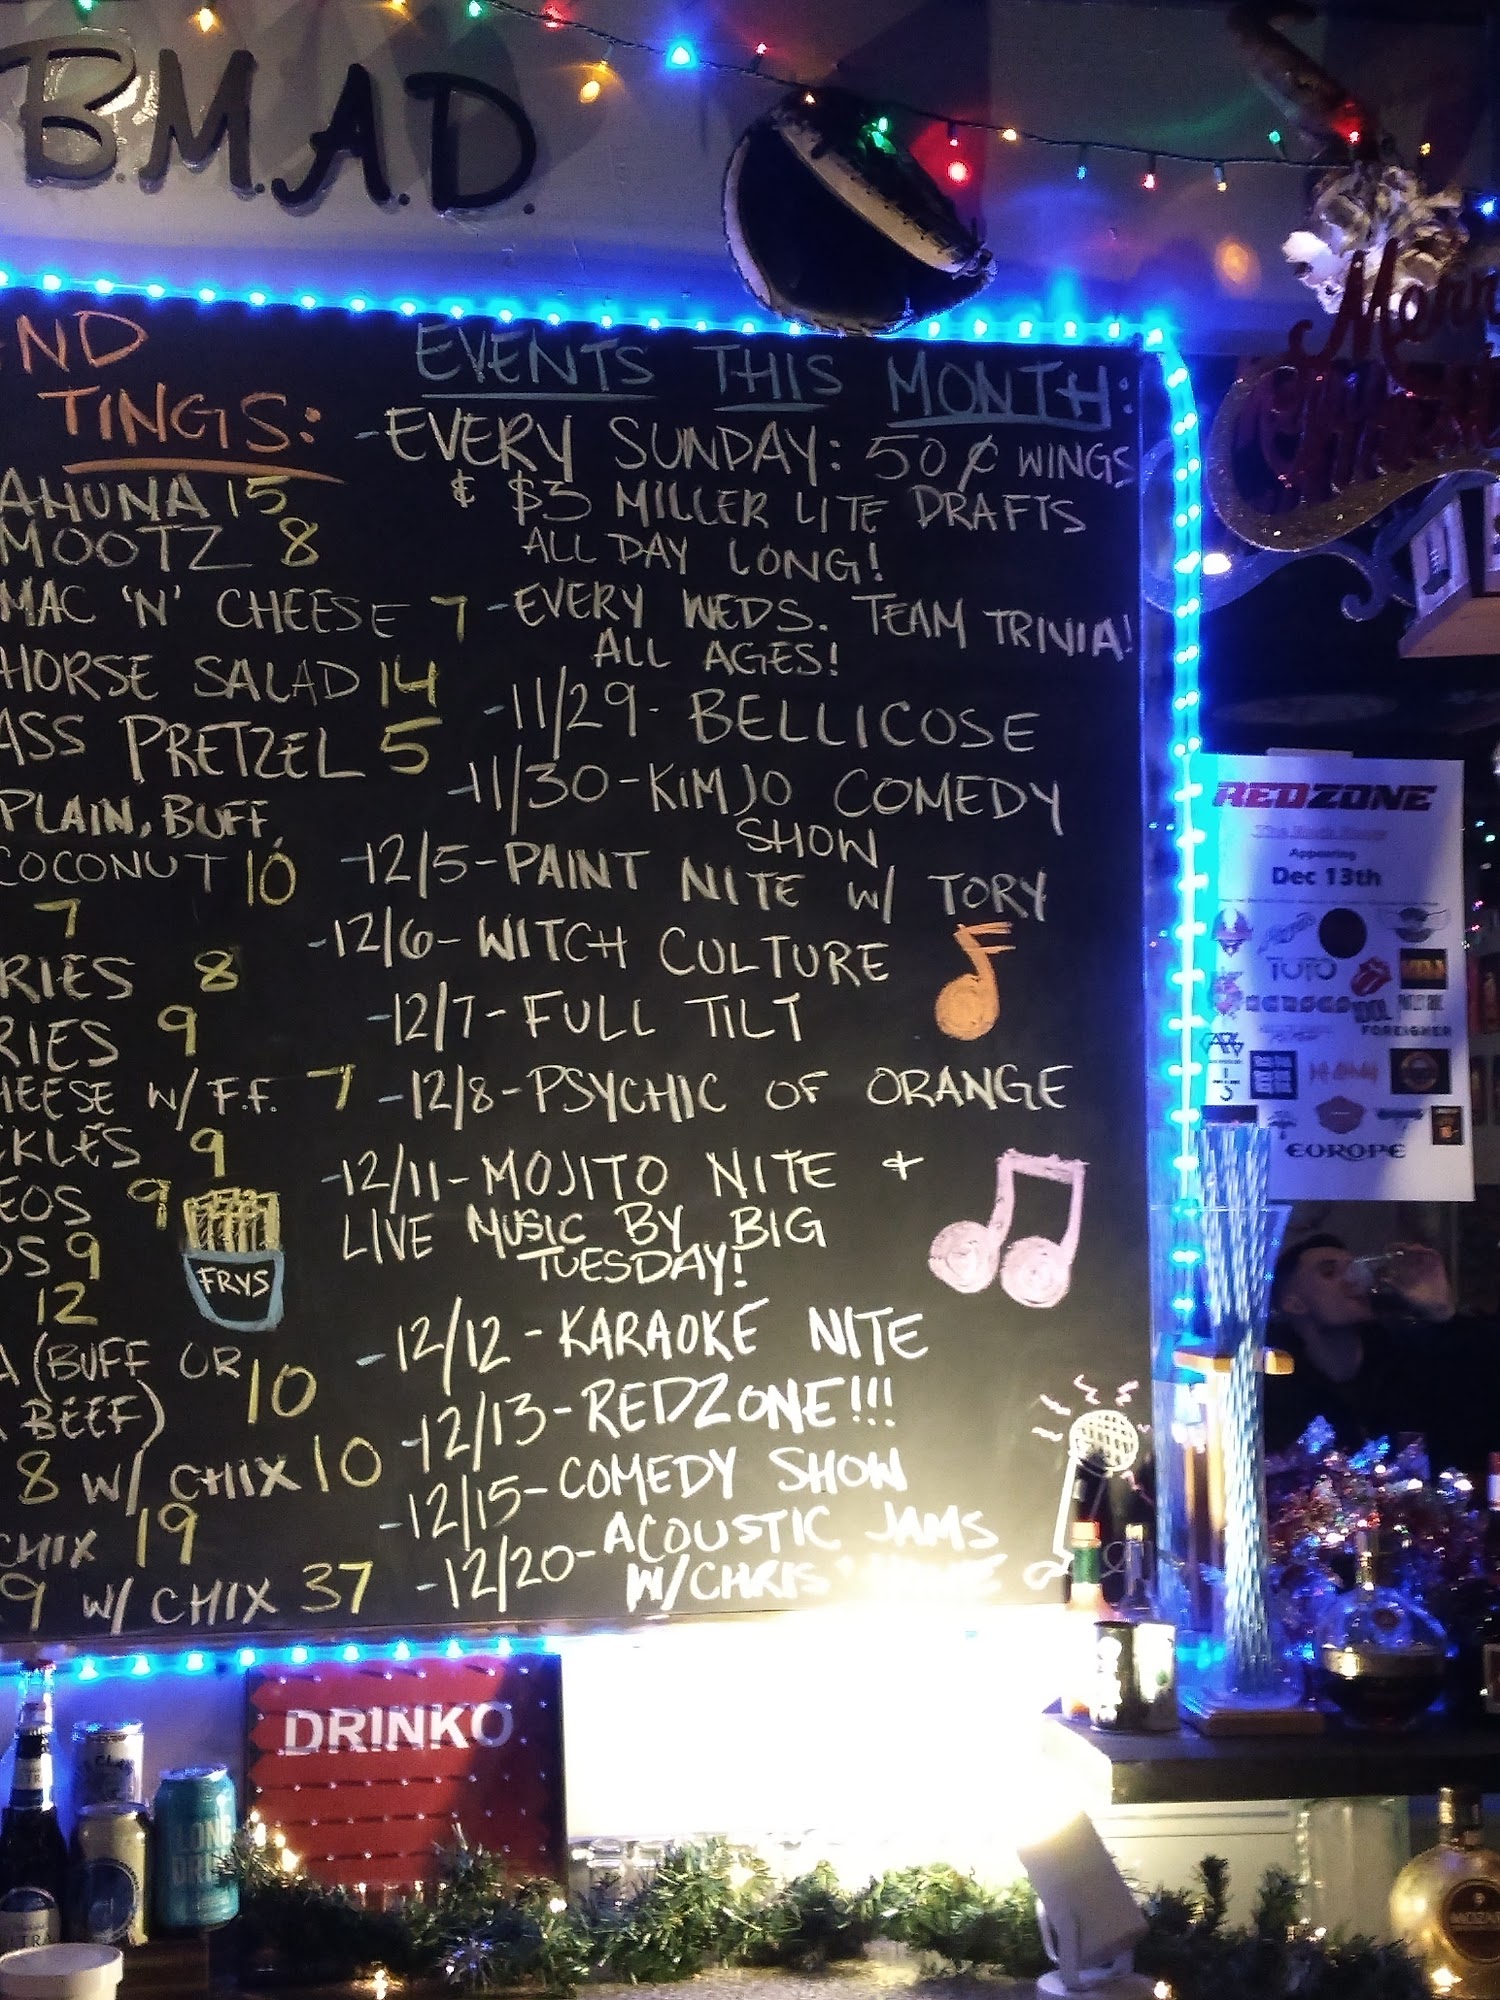 B.M.A.D.
ND
TINGS:
AHUNA 15
MOOTZ 8
MAC 'N' CHEESE 7
HORSE SALAD 14
ASS PRETZEL 5
PLAIN, BUFF,
COCONUT 10
7
RIES 8
RIES 9
HEESE W/ F.F. 7
CKLES 9
EOS 9
OS 9
12
FRYS
A (BUFF OR 10
BEEF)
8 W/ CHIX 10
CHIX 19
9 W/ CHIX 37
EVENTS THIS MONTH:
-EVERY SUNDAY: 50¢ WINGS
& $3 MILLER LITE DRAFTS
ALL DAY LONG!
-EVERY WEDS. TEAM TRIVIA!
ALL AGES!
-11/29- BELLICOSE
-11/30-KIMJO COMEDY
SHOW
-12/5-PAINT NITE W/ TORY
-12/6-WITCH CULTURE
-12/7-FULL TILT
-12/8-PSYCHIC OF ORANGE
-12/11-MOJITO NITE +
LIVE MUSIC BY BIG
TUESDAY!
-12/12-KARAOKE NITE
-12/13-REDZONE!!!
-12/15-COMEDY SHOW
-12/20-ACOUSTIC JAMS
W/CHRIS
Merry
REDZONE
Appearing
Dec 13th
TOTO
FOREIGNER
EUROPE
DRINKO
LONG